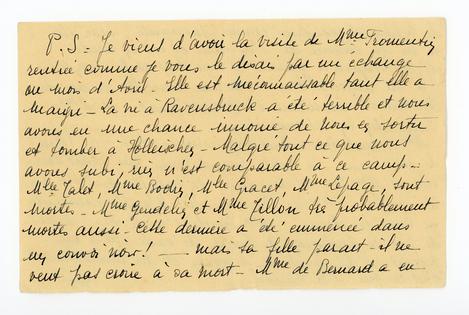 P.S= Je viens d'avoir la visite de Mme Fromentin
rentrée comme je vous le disais par un échange
au mois d'Avril. Elle est méconnaissable tant elle a
maigri - La vie à Ravensbruck a été terrible et nous
avons eu une chance inouïe de nous en sortir
et tomber à Holleischen - Malgré tout ce que nous
avons subi, rien n'est comparable à ce camp -
Mlle Talet, Mme Bodin, Mlle Gracet, Mme Lepage, sont
mortes - Mme Gendelin et Mme Tillon très probablement
mortes aussi - Cette dernière a été emmenée dans
un convoi noir ! — mais sa fille paraît-il ne
veut pas croire à sa mort - Mme de Bernard a eu